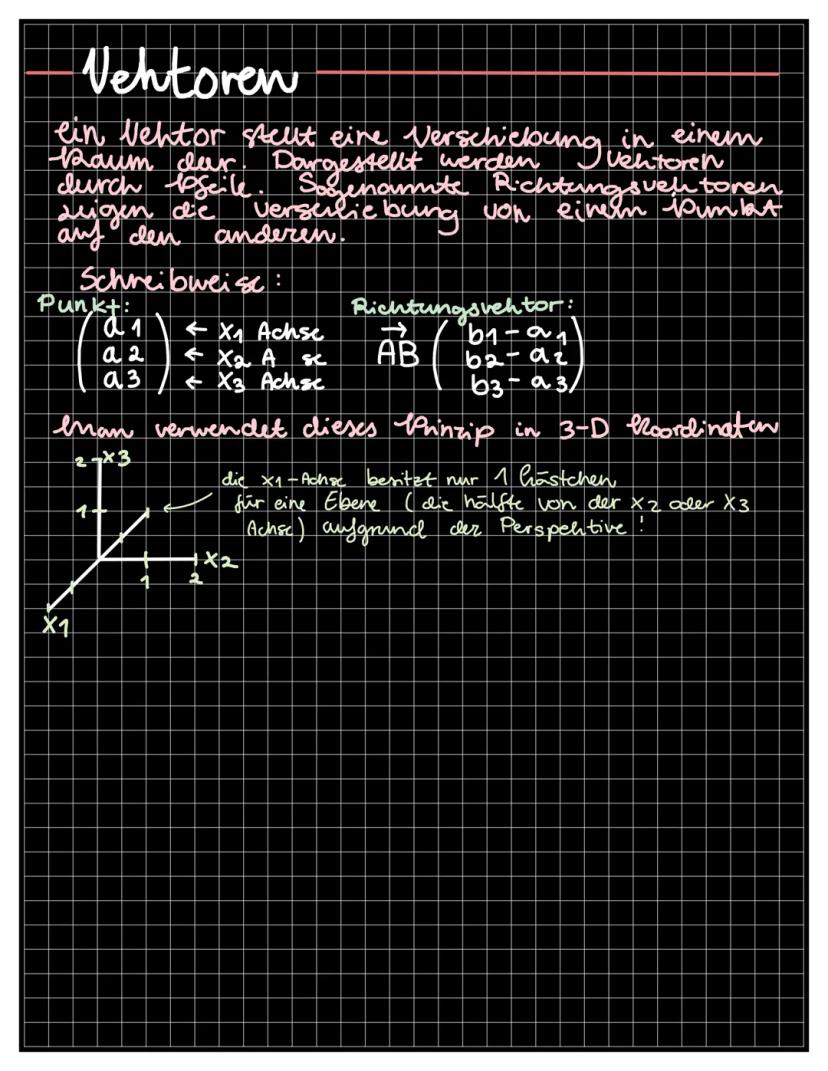 Vektoren
ein Vektor stellt eine Verschiebung in einem
Raum dar. Dargestellt werden Vektoren
durch Pfeile. Sogenannte Richtungsvektoren
zeigen die Verschiebung von einem Punkt
auf den anderen.
Schreibweise:
Punkt: Richtungsvektor:
a1 ← X1 Achse → b1 - a1
a2 ← X2 A se AB b2 - a2
a3 ← X3 Achse b3 - a3
Man verwendet dieses Prinzip in 3-D Koordinaten
2 X3
die x1-Achse besitzt nur 1 Kästchen
1 für eine Ebene (die hälfte von der x2 oder X3
Achse) aufgrund der Perspektive!
X2
1 2
X1